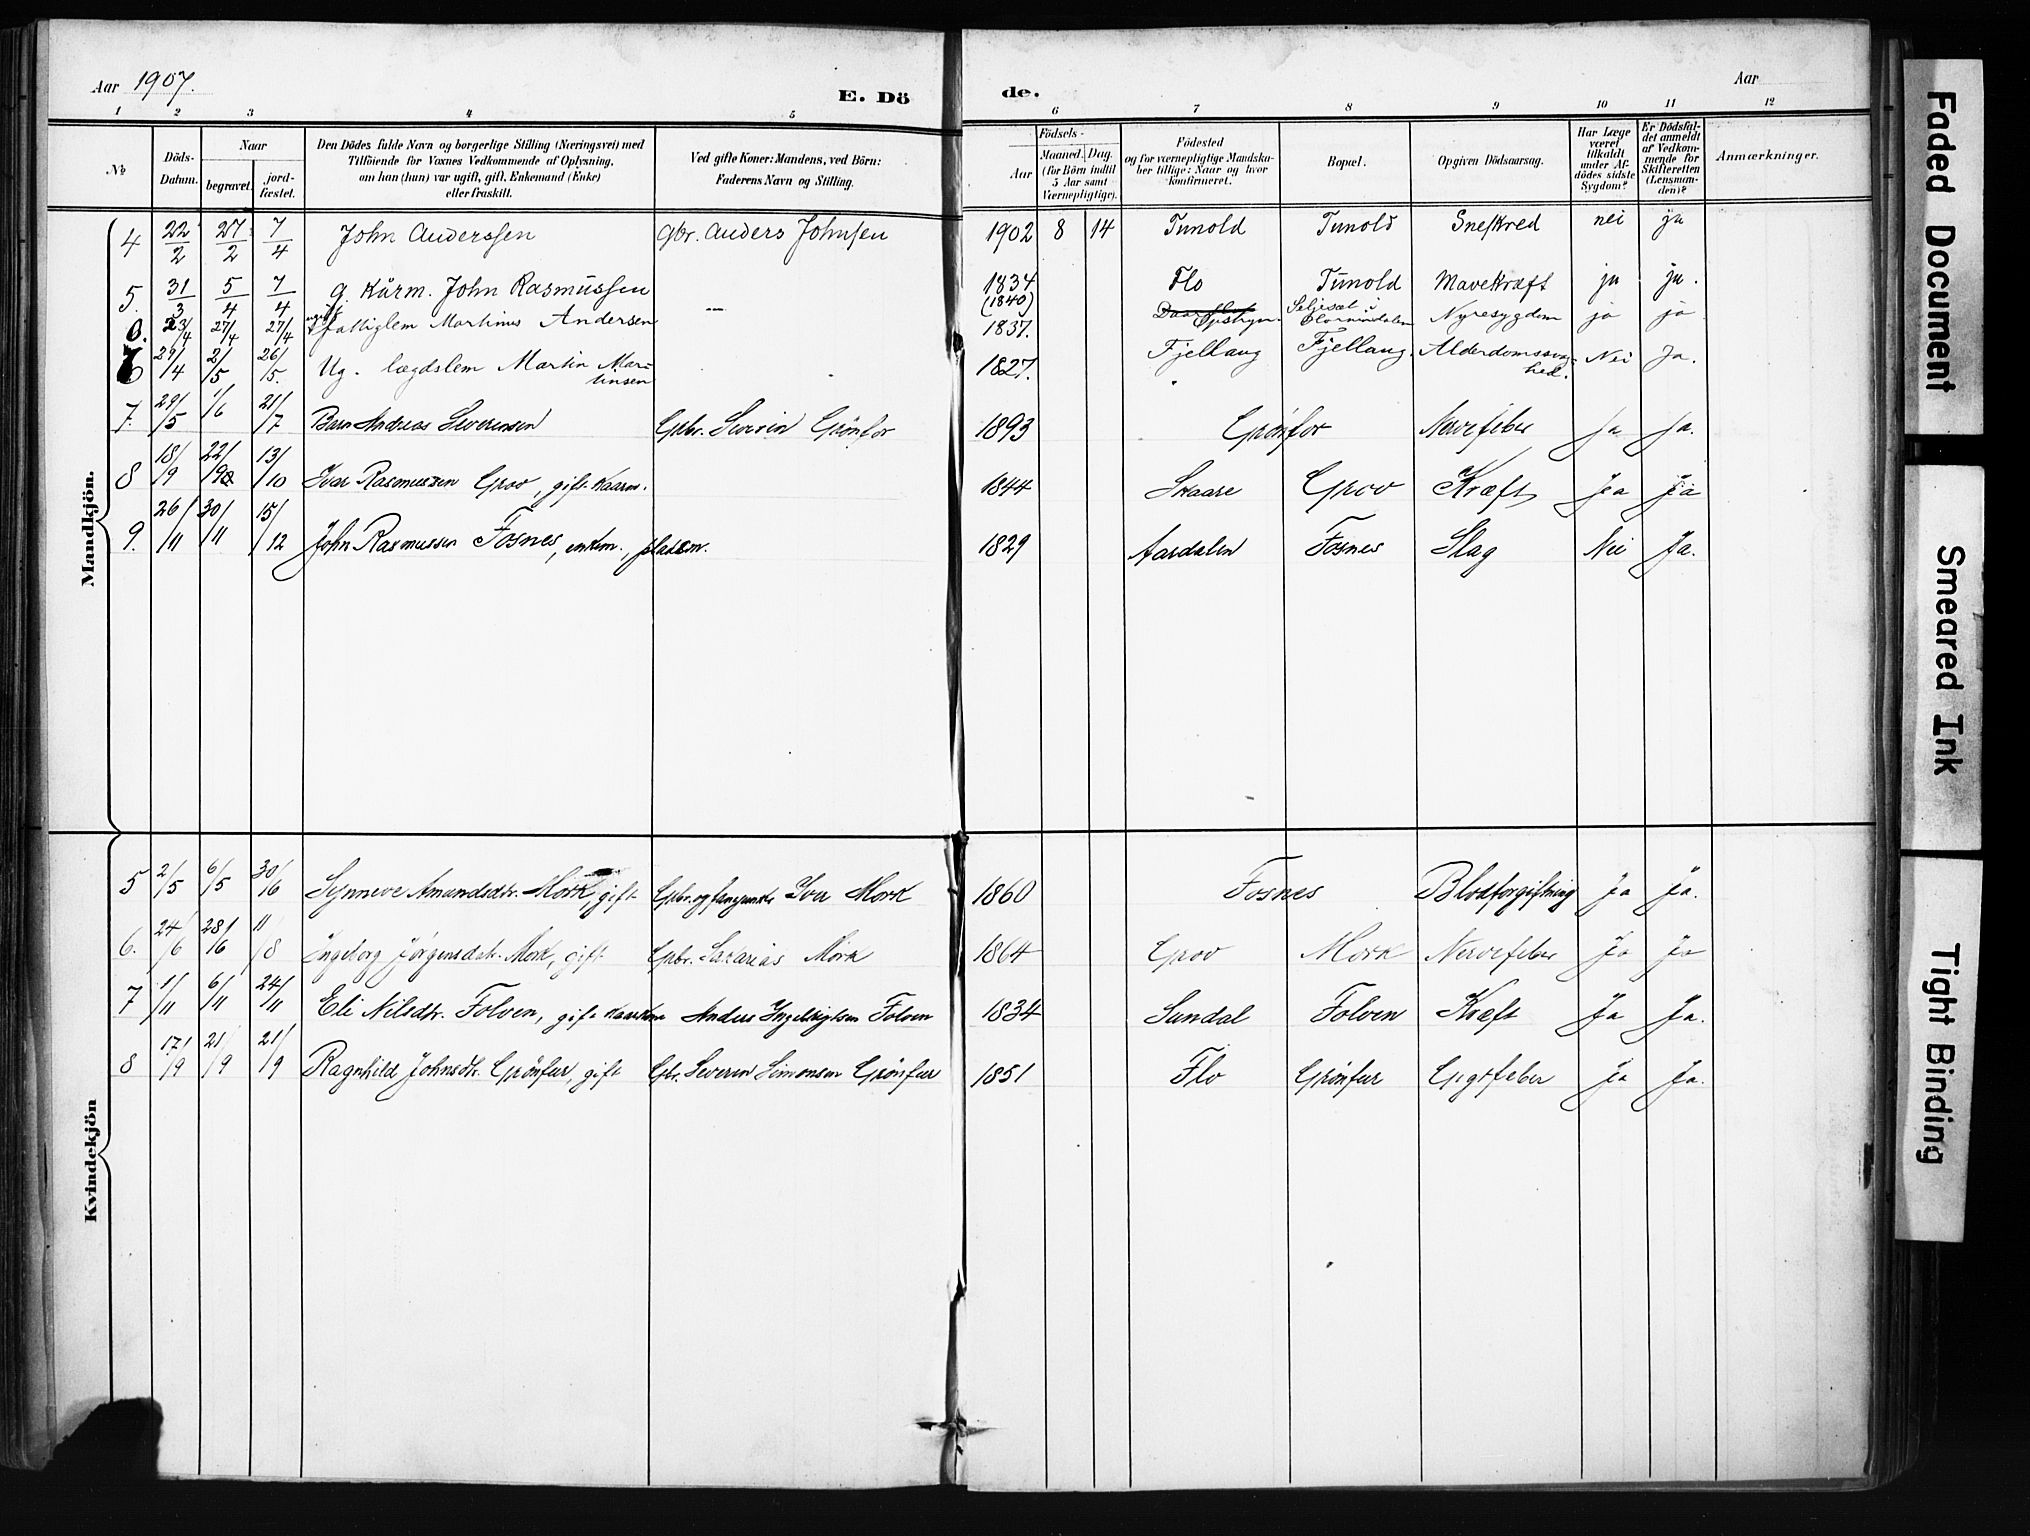 Aar 1907.
E. Dö de.
Aar
1 2 3 4 5 6 7 8 9 10 11 12
No
Döds-Datum.
Naar
begravet.
jord-fæstet.
Den Dödes fulde Navn og borgerlige Stilling (Næringsvei) med
Tilföiende for Voxnes Vedkommende af Oplysning,
om han (hun) var ugift, gift, Enkemand (Enke)
eller fraskilt.
Ved gifte Koner: Mandens, ved Börn:
Faderens Navn og Stilling.
Födsels-
Aar
Maaned. Dag.
(for Börn indtil
5 Aar samt
Værnepligtige).
Födested
og for værnepligtige Mandska-
ber tillige: Naar og hvor
Konfirmeret.
Bopæl.
Opgiven Dödsaarsag.
Har Læge
været
tilkaldt
under Af-
dödes sidste
Sygdom?
Er Dödsfal-
det anmeldt
af Vedkom-
mende for
Skifteretten
(Lensman-
den)?
Anmærkninger.
Mandkjön.
4 22/2 27/2 7/4 John Anderssen Gbr. Anders Johnsen 1902 8 14 Tunold Tunold Sneskred nei ja
5. 31/3 5/4 7/4 g. Kårm. John Rasmussen — 1834 (1840) Flo Tunold Mavekræft ja ja.
6. 23/4 27/4 27/4 ugift Fattiglem Martinus Andersen 1837. Opstryn. Seljeset i Hornindalen Nyresygdom ja ja
29/4 2/5 26/5. Ug. lægdslem Martin Martinsen 1827. Fjellaug Fjellaug. Alderdomssvaghed. Nei Ja.
7. 29/5 1/6 21/7 Barn Andreas Severinsen Gbr. Severin Grönfor 1893 Grönfor Nervefeber Ja Ja.
8 18/9 22/9 13/10 Ivar Rasmussen Grov, gift. Kaarm. 1844 Skaare Grov Kræft Ja Ja
9. 26/11 30/11 15/12 John Rasmussen Fosnes, enkem., pladsm. 1829 Aardalen Fosnes Slag Nei Ja.
Kvindekjön
5 2/5 6/5 30/6 Synneve Amundsdtr. Mork, gift Ivar Mork 1860 Fosnes Blodforgiftning Ja Ja.
6. 24/6 28/6 11/8 Ingeborg Jørgensdtr. Mork, gift Gbr. Sakarias Mork 1864 Grov Mork Nervefeber Ja Ja
7 1/11 6/11 24/11 Eli Nilsdtr. Folven, gift Anders Ingebrigtsen Folven 1834 Sundal Folven Kræft Ja Ja.
8 17/9 21/9 21/9 Ragnhild Johnsdtr. Grönfur, gift Gbr. Severin Simonsen Grönfur 1851 Flo Grönfur Gigtfeber Ja Ja.
Faded Document
Smeared Ink
Tight Binding